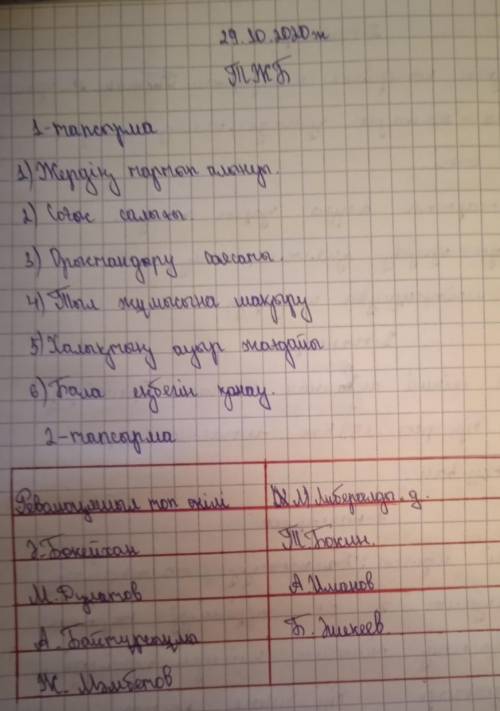 29.10.2020ж
ТЖБ
1-тапсырма
1) Жердің тартып алынуы.
2) Соғыс салығы
3) Орыстандыру саясаты.
4) Тыл жұмысына шақыру
5) Халықтың ауыр жағдайы
6) Бала еңбегін қанау.
2-тапсырма
Революцияшыл топ өкілі Либералды. д.
Ә. Бөкейхан Т Бокин.
М. Дулатов А Иманов
А. Байтұрсынұлы Б. Әшекеев
Ж. Мәмбетов